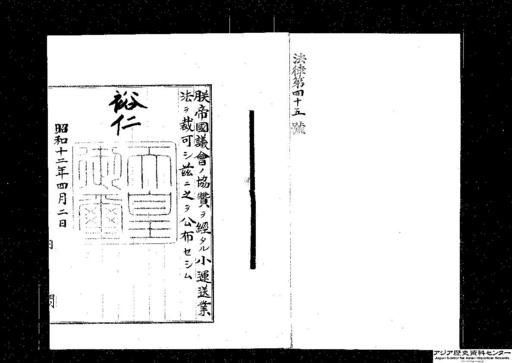 法律第四十五號
朕帝國議會ノ協贊ヲ經タル小運送業
法ヲ裁可シ茲ニ之ヲ公布セシム
裕仁
天皇御璽
昭和十二年四月二日
アジア歴史資料センター
Japan Center for Asian Historical Records